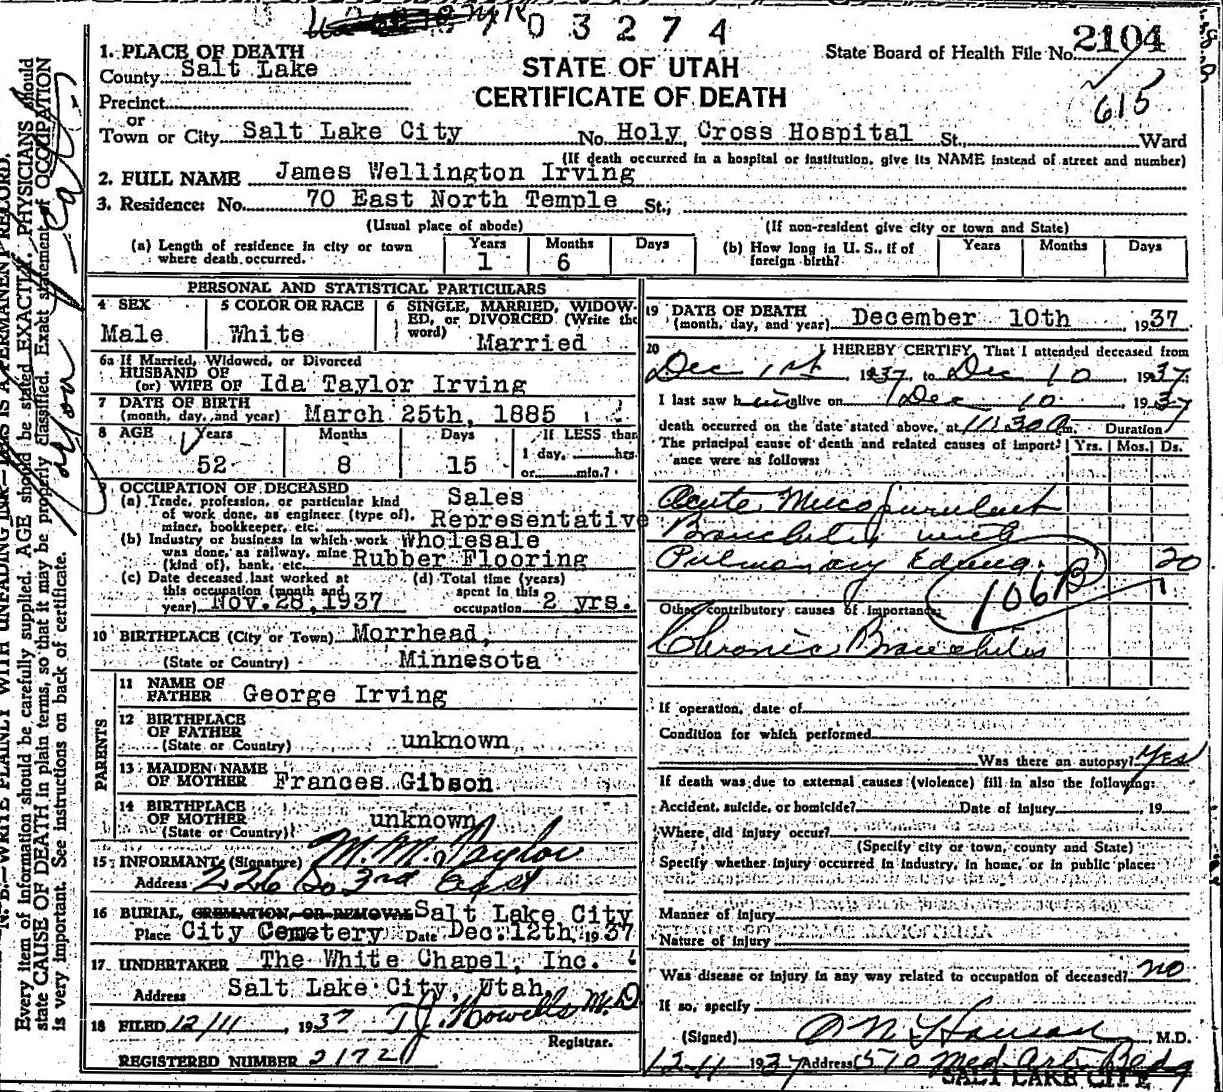 03274
2104
615
1. PLACE OF DEATH
State Board of Health File No.
County Salt Lake
STATE OF UTAH
CERTIFICATE OF DEATH
Precinct
or
Town or City Salt Lake City No. Holy Cross Hospital St., Ward
(If death occurred in a hospital or institution, give its NAME instead of street and number)
2. FULL NAME James Wellington Irving
3. Residence: No. 70 East North Temple St.,
(Usual place of abode) (If non-resident give city or town and State)
(a) Length of residence in city or town where death occurred. Years 1 Months 6 Days
(b) How long in U. S., if of foreign birth? Years Months Days
PERSONAL AND STATISTICAL PARTICULARS
4 SEX Male
5 COLOR OR RACE White
6 SINGLE, MARRIED, WIDOWED, or DIVORCED (Write the word) Married
6a If Married, Widowed, or Divorced
HUSBAND OF
(or) WIFE OF Ida Taylor Irving
7 DATE OF BIRTH
(month, day, and year) March 25th, 1885
8 AGE Years Months Days If LESS than
52 8 15 1 day, hrs.
or min.?
9 OCCUPATION OF DECEASED
(a) Trade, profession, or particular kind of work done, as engineer (type of), miner, bookkeeper, etc. Sales Representative
(b) Industry or business in which work was done, as railway, mine (kind of), bank, etc. Wholesale Rubber Flooring
(c) Date deceased last worked at this occupation (month and year) Nov. 28, 1937
(d) Total time (years) spent in this occupation 2 yrs.
10 BIRTHPLACE (City or Town) Morrhead,
(State or Country) Minnesota
PARENTS
11 NAME OF FATHER George Irving
12 BIRTHPLACE OF FATHER
(State or Country) unknown
13 MAIDEN NAME OF MOTHER Frances Gibson
14 BIRTHPLACE OF MOTHER
(State or Country) unknown
15 INFORMANT (Signature) M. M. Taylor
Address 226 So 3rd East
16 BURIAL, CREMATION, OR REMOVAL Salt Lake City
Place City Cemetery Date Dec. 12th, 1937
17 UNDERTAKER The White Chapel, Inc.
Address Salt Lake City, Utah,
18 FILED 12/11, 1937 T J Howells M.D
Registrar.
REGISTERED NUMBER 2172
19 DATE OF DEATH
(month, day, and year) December 10th 1937
20 I HEREBY CERTIFY, That I attended deceased from
Dec 1st 1937, to Dec 10 1937
I last saw him alive on Dec 10 1937
death occurred on the date stated above, at 11:30 a m. Duration
The principal cause of death and related causes of importance were as follows: Yrs. Mos. Ds.
Acute Mucopurulent
Bronchitis with
Pulmonary Edema. 20
106B
Other contributory causes of importance:
Chronic Bronchitis
If operation, date of
Condition for which performed
Was there an autopsy? Yes
If death was due to external causes (violence) fill in also the following:
Accident, suicide, or homicide? Date of injury 19
Where did injury occur?
(Specify city or town, county and State)
Specify whether injury occurred in industry, in home, or in public place:
Manner of injury
Nature of injury
Was disease or injury in any way related to occupation of deceased? no
If so, specify
(Signed) , M.D.
12-11 1937 Address 570 Med Arts Bldg
SALT LAKE CITY
N. B.—WRITE PLAINLY WITH UNFADING INK—THIS IS A PERMANENT RECORD.
Every item of information should be carefully supplied. AGE should be stated EXACTLY. PHYSICIANS should
state CAUSE OF DEATH in plain terms, so that it may be properly classified. Exact statement of OCCUPATION
is very important. See instructions on back of certificate.